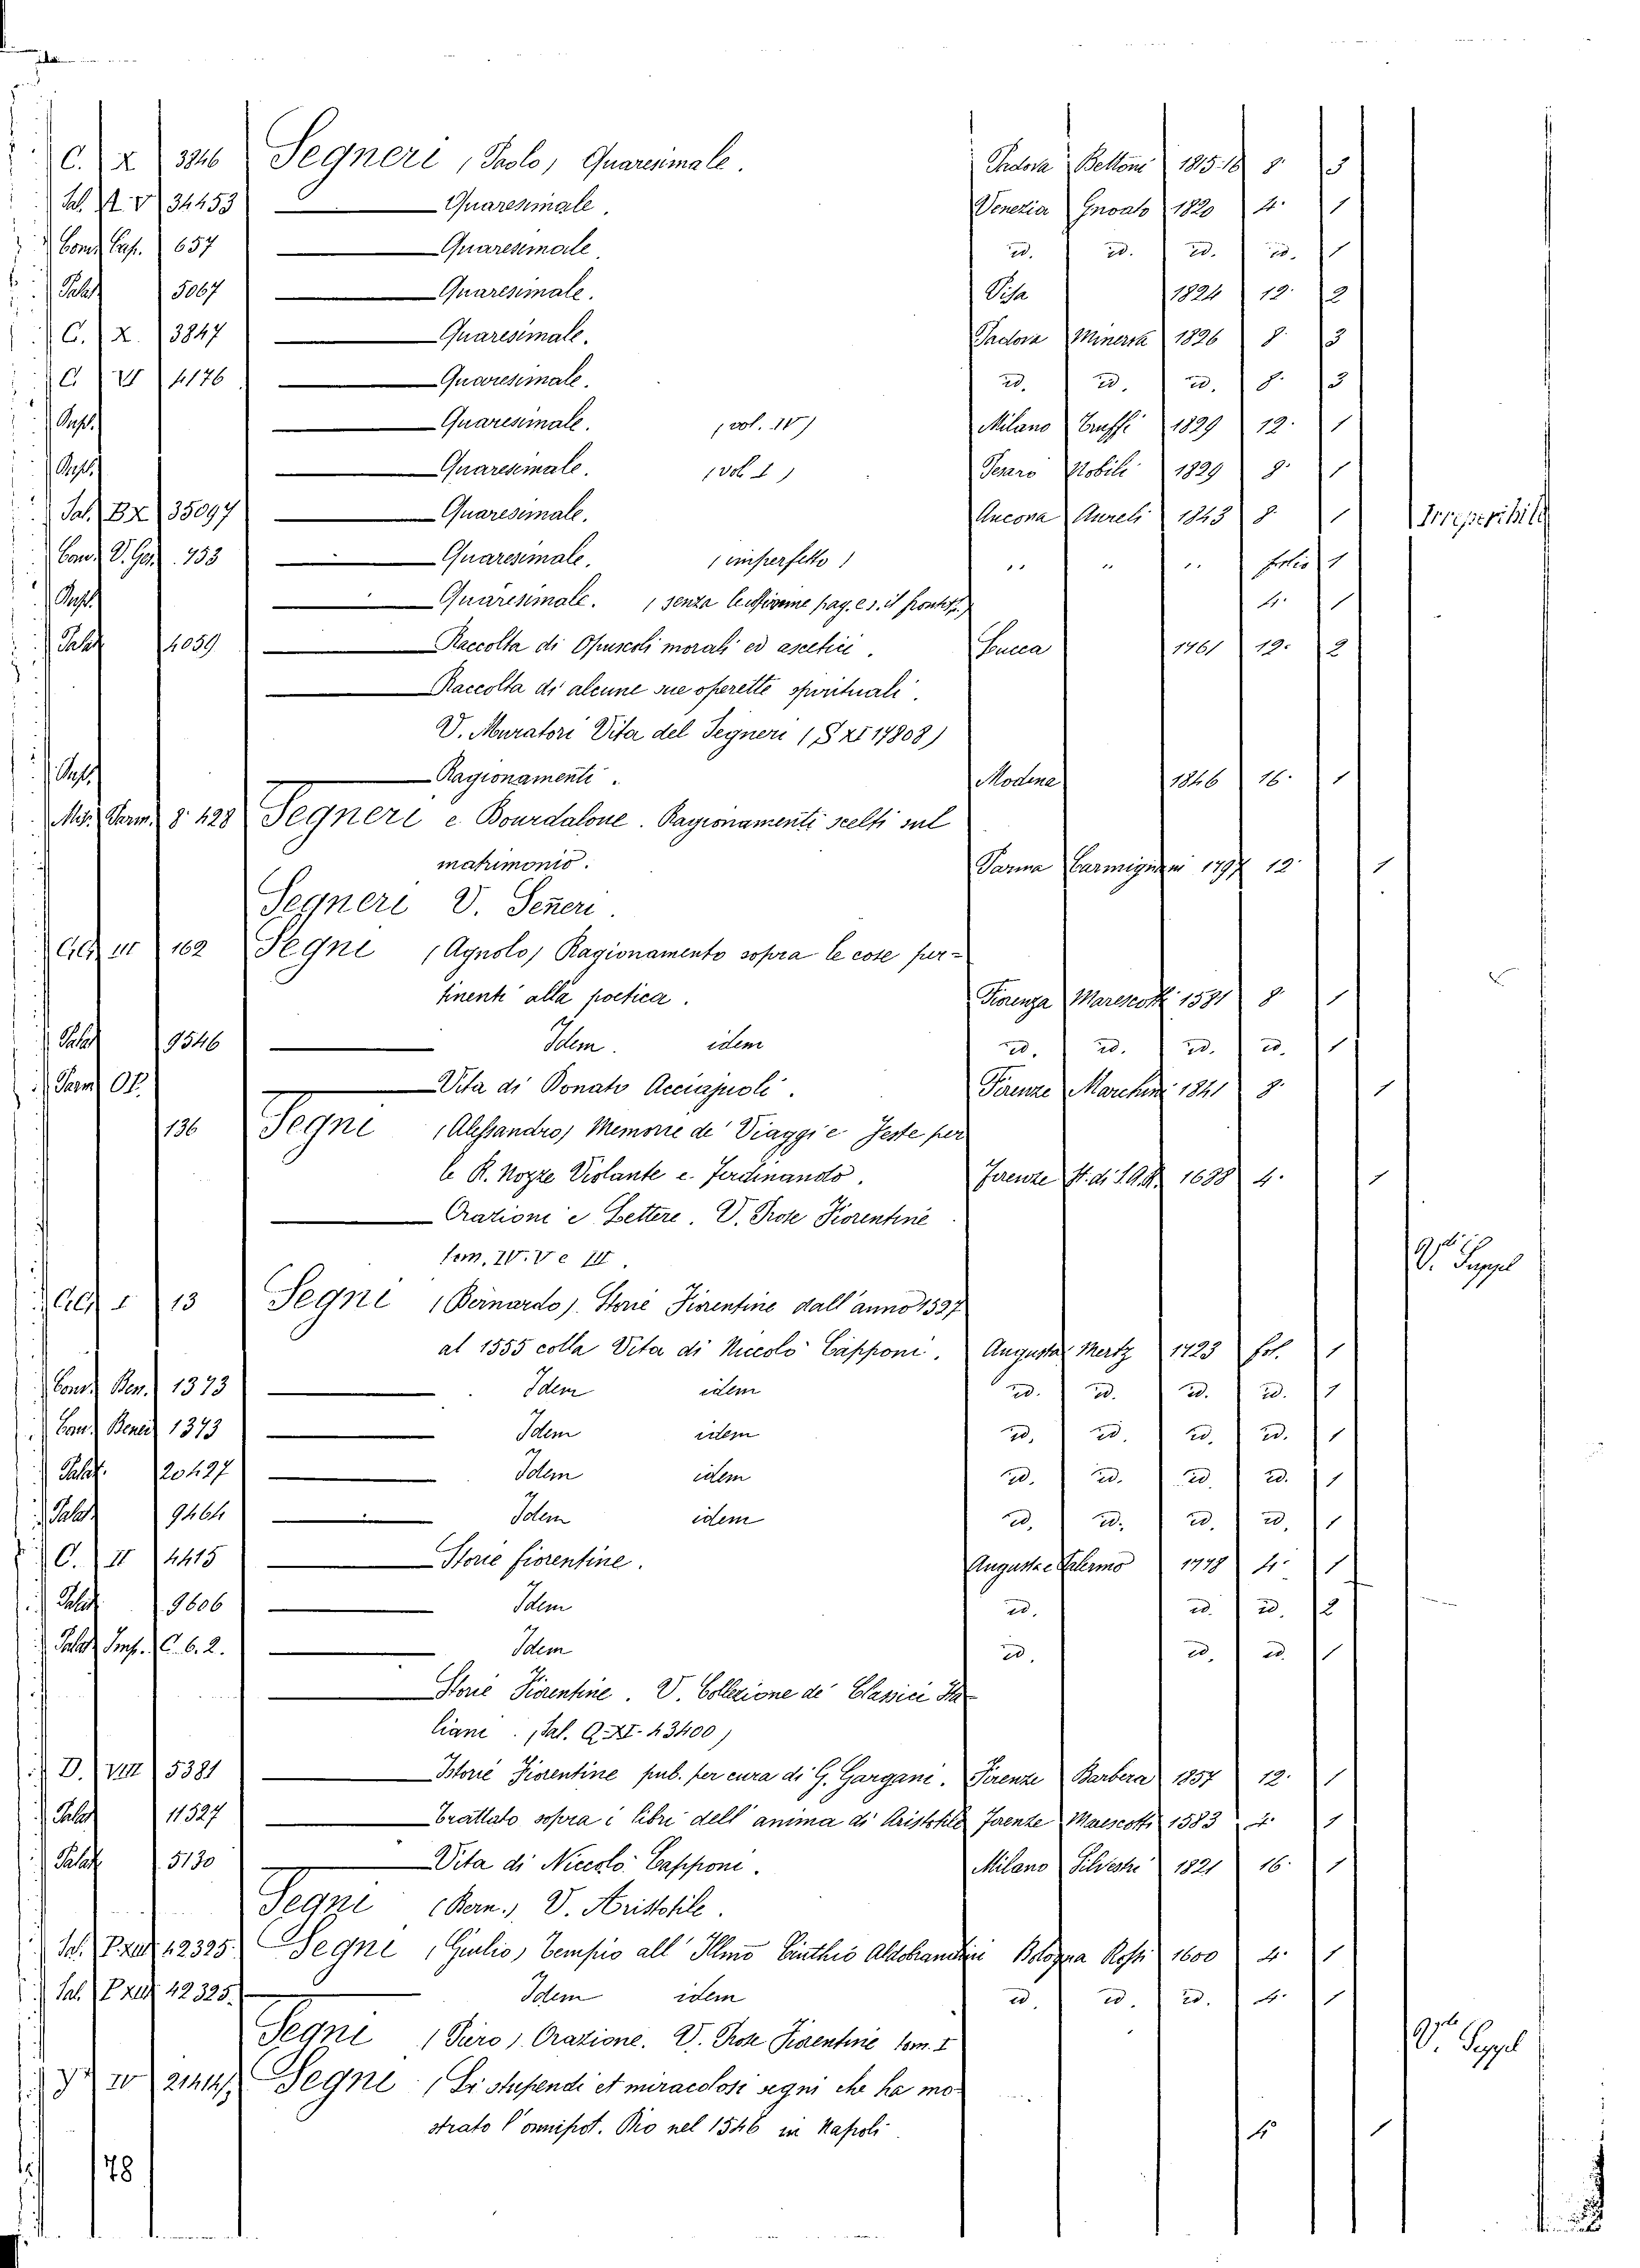 C. X 3846 Segneri (Paolo) Quaresimale. Padova Bettoni 1815-18 8. 3
Sal. V 34453 Quaresimale. Venezia Gnoato 1820 4. 1
657 Quaresimale. id. id. id. id. 1
Palat 5067 Quaresimale. Pisa 1824 12. 2
C. X. 3847 Quaresimale. Padova Minerva 1826 8. 3
C 4176 Quaresimale. id. id. id. 8. 3
Quaresimale. (vol. IV) Milano Truffi 1829 12. 1
Quaresimale. (vol. I) Pesaro Nobili 1829 8. 1
Sal. BX 35097 Quaresimale. Ancona Aureli 1843 8. 1 Irreperibile
Quaresimale. (imperfetto) " " " folio 1
Quaresimale. (senza le ultime pag. e s. il frontisp.) 4. 1
Palat 4059 Raccolta di Opuscoli morali ed ascetici. Lucca 1761 12. 2
Raccolta di alcune sue operette spirituali.
V. Muratori Vita del Segneri (S XI 17808)
Ragionamenti. Modena 1846 16. 1
8. 428 Segneri e Bourdaloue. Ragionamenti scelti sul
matrimonio. Parma Carmignani 1797 12. 1
Segneri V. Señeri.
162 Segni (Agnolo) Ragionamento sopra le cose per-
tinenti alla poetica. Fiorenza Marescotti 1581 8. 1
Palat 9546 Idem. idem id. id. id. id. 1
Vita di Donato Acciajuoli. Firenze Marchini 1841 8. 1
136 Segni (Alessandro) Memorie de' Viaggi e Feste per
le R. Nozze Violante e Ferdinando. Firenze St. di S.A.S. 1688 4. 1
Orazioni e Lettere. V. Prose Fiorentine
tom. IV. V e III. V. Suppl
I 13 Segni (Bernardo). Storie Fiorentine dall'anno 1527
al 1555 colla Vita di Niccolò Capponi. Augusta Mertz 1723 fol. 1
Cons. Ben. 1373 Idem idem id. id. id. id. 1
1373 Idem idem id. id. id. id. 1
Palat. 20427 Idem idem id. id. id. id. 1
Palat 9464 Idem idem id. id. id. id. 1
C. II 4415 Storie fiorentine. Augusta e Palermo 1778 4. 1
Palat 9606 Idem id. id. id. 2
Palat C. 6. 2. Idem id. id. id. 1
Storie Fiorentine. V. Collezione de' Classici Ita-
liani. (Sal. Q. XI. 43400)
D. VIII 5381 Istorie Fiorentine pub. per cura di G. Gargani. Firenze Barbera 1857 12. 1
Palat 11527 Trattato sopra i libri dell'anima di Aristotile Firenze Marescotti 1583 4. 1
Palat 5130 Vita di Niccolò Capponi. Milano Silvestri 1821 16. 1
Segni (Bern.) V. Aristotile.
Sal. 42325. Segni (Giulio) Tempio all'Illmo Cinthio Aldobrandini Bologna Rossi 1600 4. 1
Sal. 42325. Idem idem id. id. id. 4. 1
Segni (Piero). Orazione. V. Prose Fiorentine tom. I V. Suppl
IV Segni (Li stupendi et miracolosi segni che ha mo-
strato l'omnipot. Dio nel 1546 in Napoli. 4. 1
178